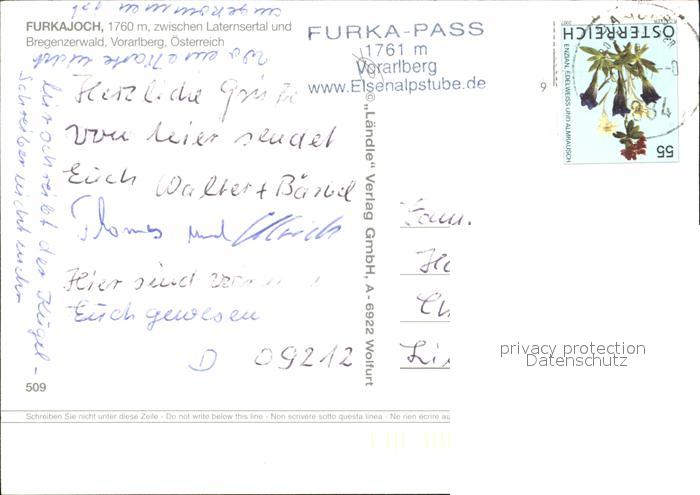 FURKAJOCH, 1760 m, zwischen Laternsertal und
Bregenzerwald, Vorarlberg, Österreich
FURKA-PASS
1761 m
Vorarlberg
www.Elsenalpstube.de
ÖSTERREICH
ENZIAN, EDELWEISS UND ALMRAUSCH
2007
55
Herzliche Grüße
von hier sendet
Euch Walter + Bärbel
Thomas und Ulrich
Hier sind
Euch gewesen
hier schreibt der Kugel-
schreiber nicht mehr
wo eure Karte nicht
angekommen ist
© „Ländle" Verlag GmbH, A - 6922 Wolfurt
Fam.
He
Ch
D 09212 Li
509
Schreiben Sie nicht unter diese Zeile - Do not write below this line - Non scrivere sotto questa linea - Ne rien écrire au
privacy protection
Datenschutz